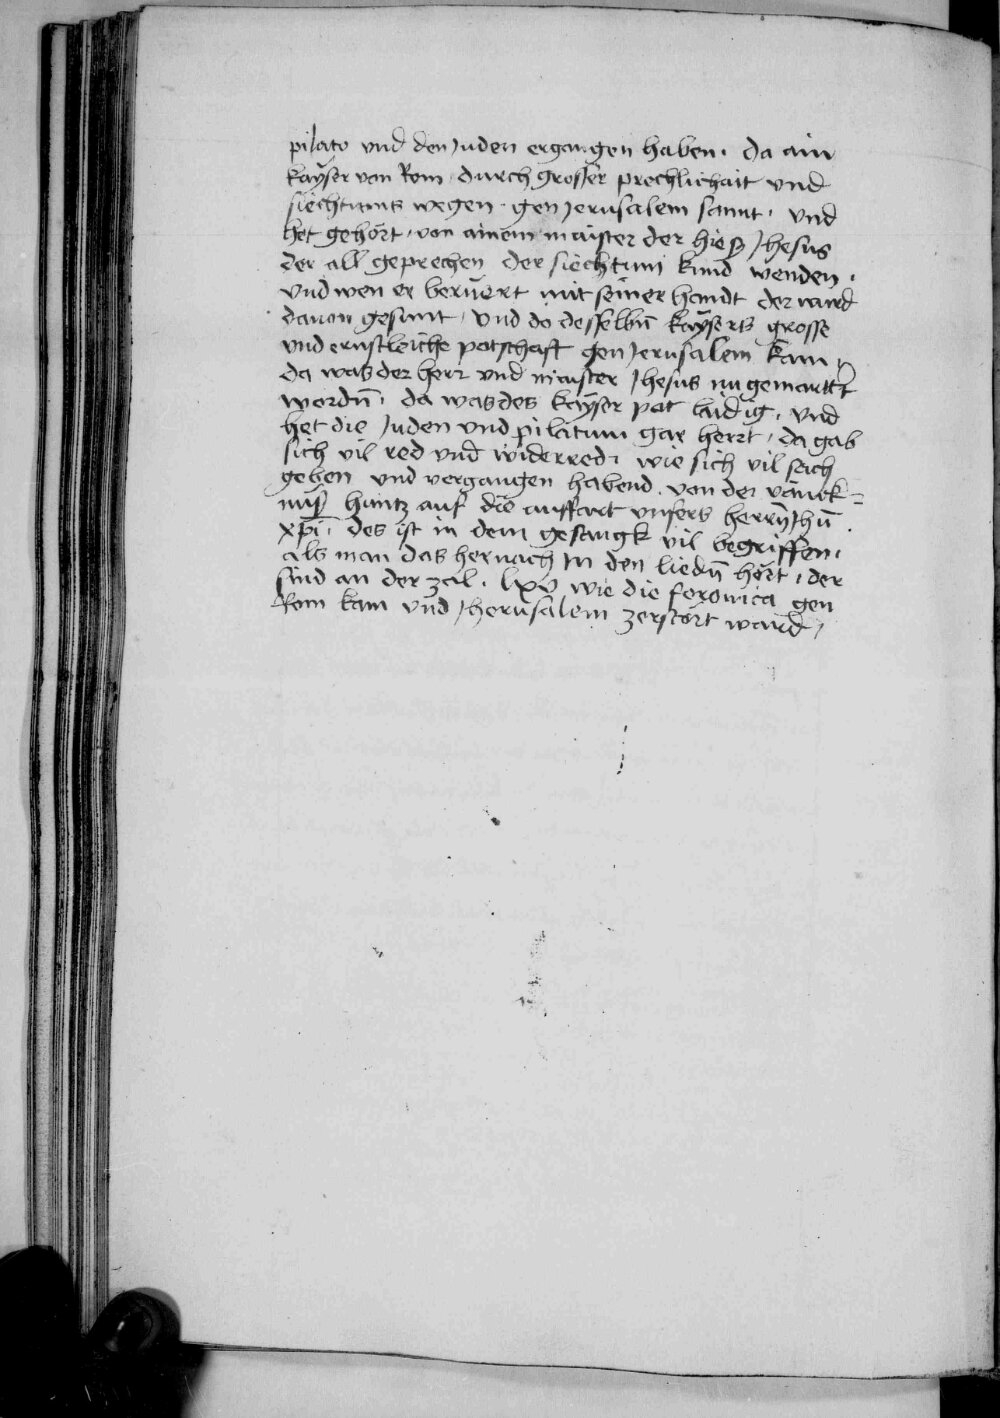 pilato vnd den Juden ergangen haben · da ain
kayser von Rom · durch grosser prechlichait vnd
siechtums wegen · gen Jerusalem sannt · vnd
het gehört · von ainem maister der hieß Jhesus
der all geprechen der siechtum kund wenden ·
vnd wen er berüert mit seiner handt der ward
dauon gesunt · vnd do desselbn̄ kaysers grosse
vnd ernstleiche potschaft gen Jerusalem kam ·
da was der herr vnd maister Jhesus nu gemarttert
wordn̄ · da was des kayser pot laidig · vnd
het die Juden vnd pilatum gar herrt · da gab
sich vil red vnd widerred · wie sich vil sach
geben vnd vergangen habend · von der vänck-
nüß huntz auf die auffart vnsers herrn̄ Jhū
xp̄i · des ist in dem gesangk vil begriffen ·
als man das hernach Jn den liedn̄ hört · der
sind an der zal · lxv wie die feronica gen
Rom kam vnd Jherusalem zerstört ward /